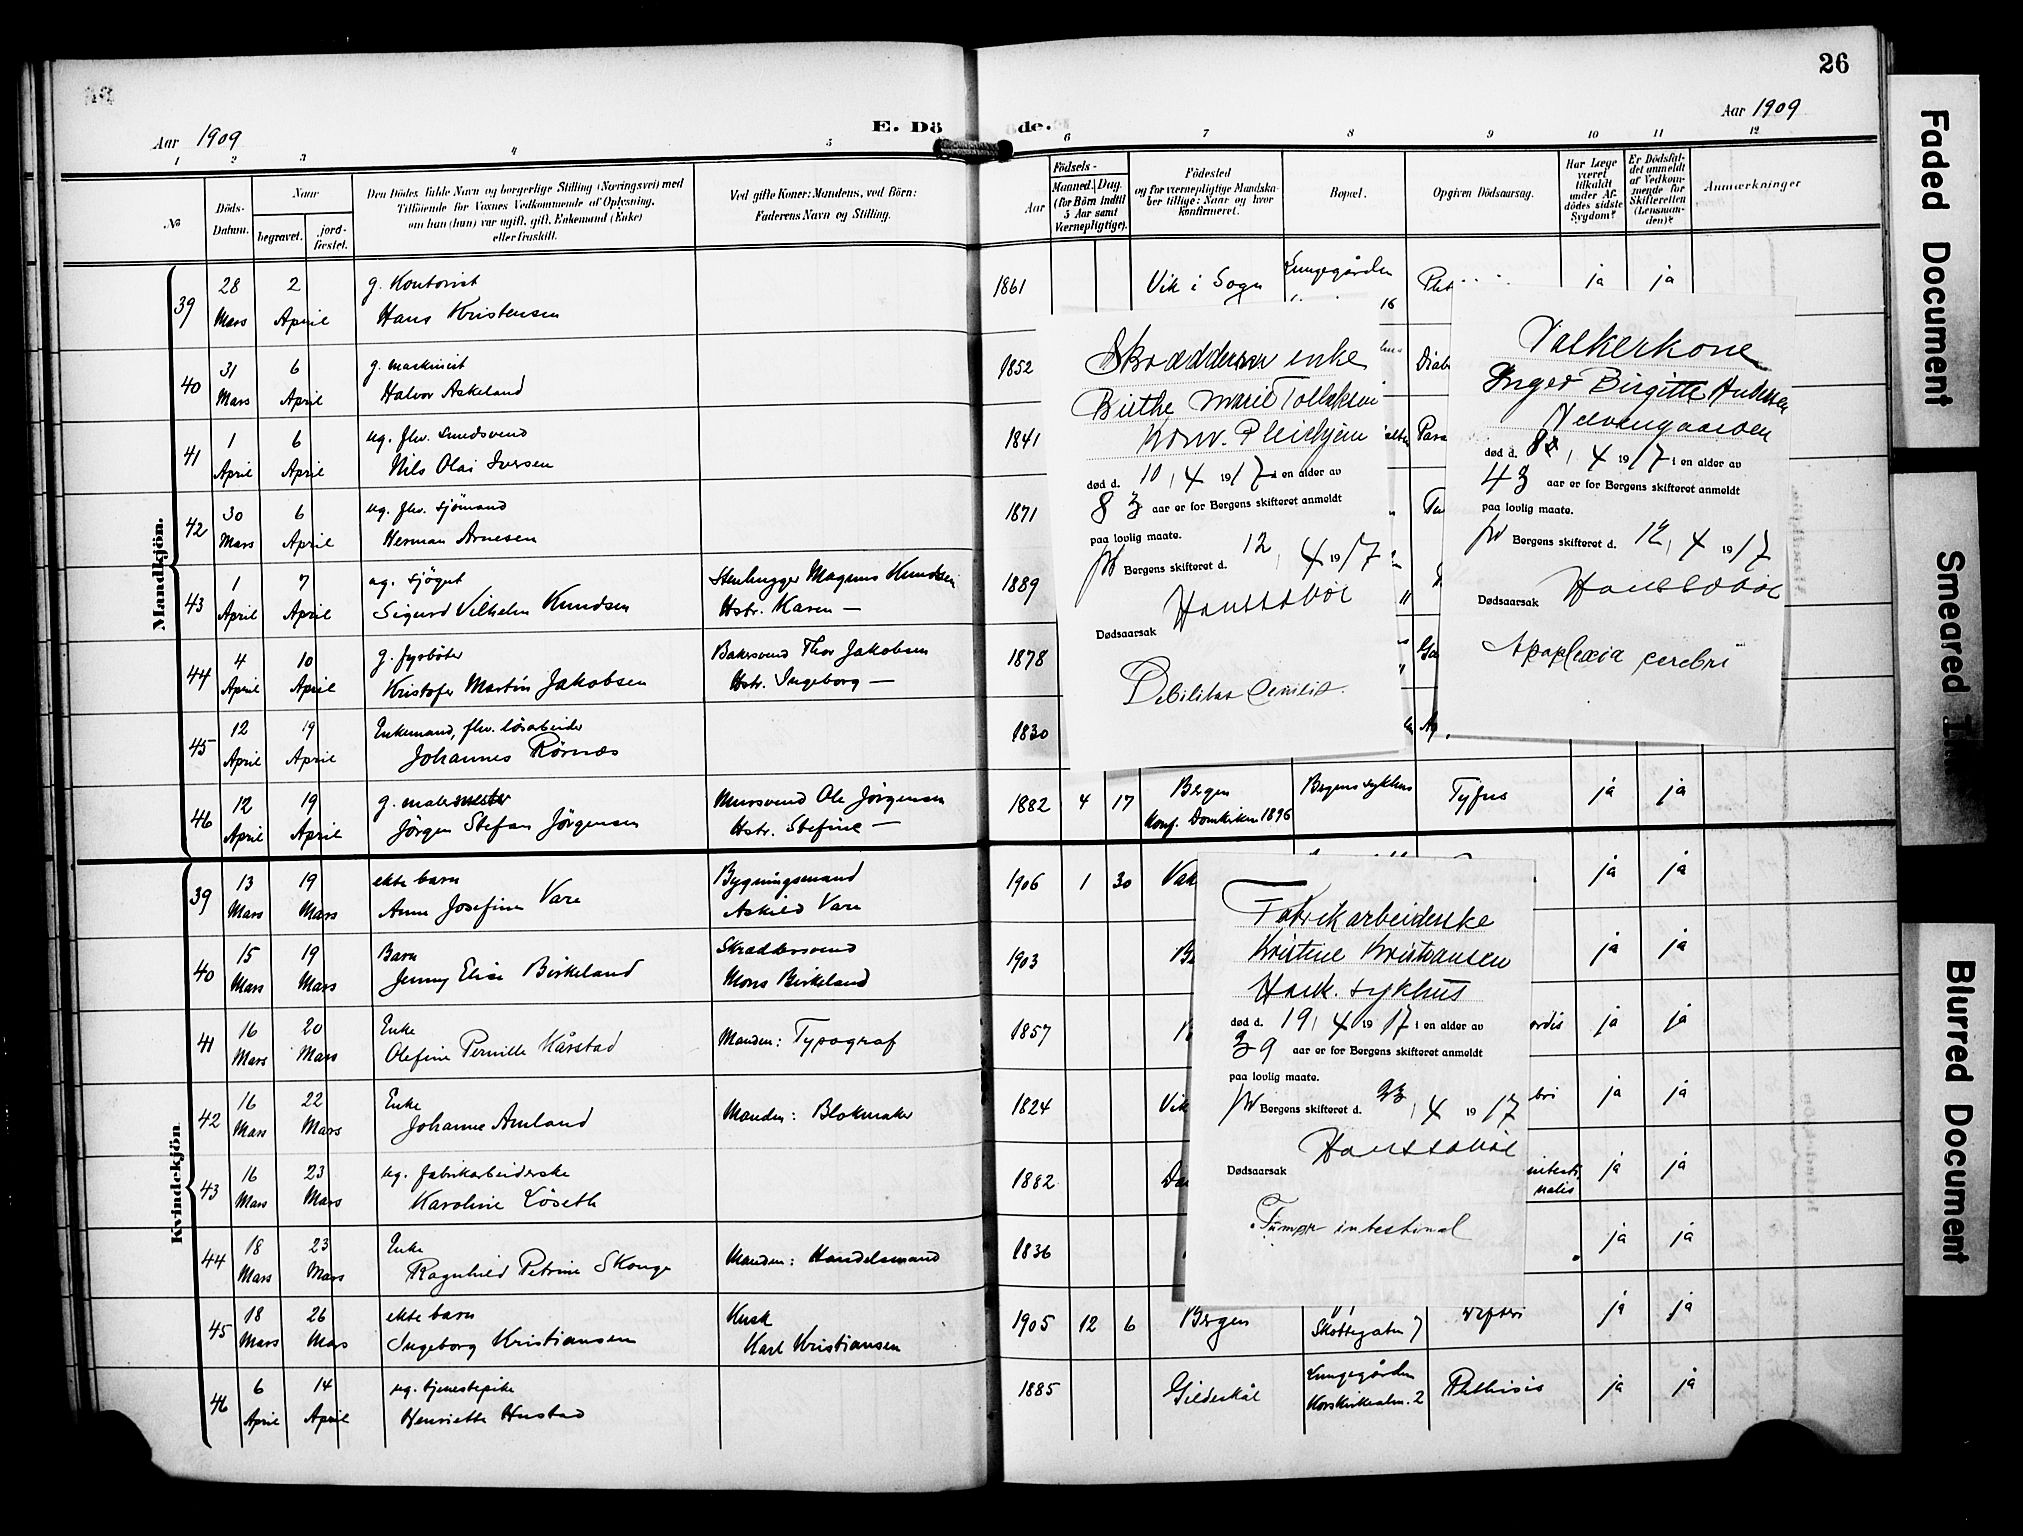 26
Aar 1909
E. Dö
de.
Aar 1909
1 2 3 4 5 6 7 8 9 10 11 12
No
Döds-
Datum.
Naar
begravet.
jord-
fæstet.
Den Dödes fulde Navn og borgerlige Stilling (Næringsvei) med
Tilföiende for Voxnes Vedkommende af Oplysning,
om han (hun) var ugift, gift, Enkemand (Enke)
eller fraskilt.
Ved gifte Koner: Mandens, ved Börn:
Faderens Navn og Stilling.
Födsels-
Aar
Maaned.
Dag.
(for Börn indtil
5 Aar samt
Værnepligtige).
Födested
og for værnepligtige Mandska-
ber tillige: Naar og hvor
konfirmeret.
Bopæl.
Opgiven Dödsaarsag.
Har Læge
været
tilkaldt
under Af-
dödes sidste
Sygdom?
Er Dödsfal-
det anmeldt
af Vedkom-
mende for
Skifteretten
(Lensman-
den)?
Anmærkninger
Mandkjön.
39 28 Mars 2 April g. Kontorist
Hans Kristensen
1861 Vik i Sogn Lungegården
16
ja ja
40 31 Mars 6 April g. maskinist
Halvor Askeland
1852
41 1 April 6 April ug. fhv. Sundsvend
Nils Olai Iversen
1841
42 30 Mars 6 April ug. fhv. sjömand
Herman Arnesen
1871
43 1 April 7 April ug. sjögut
Sigurd Vilhelm Knudsen
Stenhugger Magnus Knudsen
Hstr. Karen —
1889
44 4 April 10 April g. fyrböter
Kristofer Martin Jakobsen
Bakersvend Thor Jakobsen
Hstr. Ingeborg —
1878
45 12 April 19 April Enkemand, fhv. lösarbeider
Johannes Rørnæs
1830
46 12 April 19 April g. malermester
Jörgen Stefan Jörgensen
Mursvend Ole Jörgensen
Hstr. Stefine —
1882 4 17 Bergen
Konf. Domkirken 1896
Bergens sykhus
Tyfus
ja ja
Skræddersven enke
Birthe Marie Tollaksen
Komv. Pleiehjem
død d. 10, 4 1917 i en alder av
83 aar er for Bergens skifteret anmeldt
paa lovlig maate.
Bergens skifteret d. 12, 4 1917
Dødsaarsak
Debilitas senilis.
Valkerkone
Inger Birgitte
død d. 8, 4 1917 i en alder av
43 aar er for Bergens skifteret anmeldt
paa lovlig maate.
Bergens skifteret d. 12, 4 1917
Dødsaarsak
Apoplexia cerebri
Kvindekjön
39 13 Mars 19 Mars ekte barn
Anna Josefine Vare
Bygningsmand
Askild Vare
1906 1 30
ja ja
40 15 Mars 19 Mars Barn
Jenny Elise Birkeland
Skræddersvend
Mons Birkeland
1903
ja ja
41 16 Mars 20 Mars Enke
Olefine Pernille Kårstad
Manden: Typograf
1857
ja ja
42 16 Mars 22 Mars Enke
Johanne Amland
Manden: Blokmaker
1824 Vik
ja ja
43 16 Mars 23 Mars ug. fabrikarbeiderske
Karoline Löseth
1882
ja ja
44 18 Mars 23 Mars Enke
Ragnhild Petrine Skonge
Manden: Handelsmand
1836
ja ja
45 18 Mars 26 Mars ekte barn
Ingeborg Kristiansen
Kusk
Karl Kristiansen
1905 12 6 Bergen
Skottegaten 7
ja ja
46 6 April 14 April ug. tjenestepike
Henriette Hustad
1885 Gildeskål
Lungegården
Korskirkealm. 2
Phthisis
ja ja
Fabrikarbeiderske
Kristine Kristiansen
Hauk. sykhus
død d. 19, 4 1917 i en alder av
39 aar er for Bergens skifteret anmeldt
paa lovlig maate.
Bergens skifteret d. 23, 4 1917
Dødsaarsak
Tumor intestinal
Faded Document
Smeared
Blurred Document